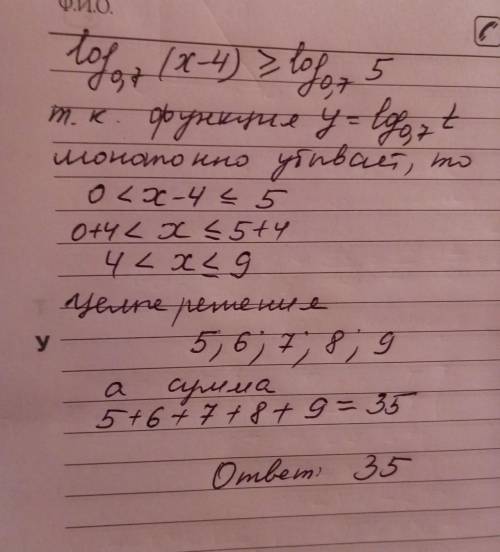 Ф.И.О.
log₀,₇ (x-4) ≥ log₀,₇ 5
т.к. функция y = log₀,₇ t
монотонно убывает, то
0 < x-4 ≤ 5
0+4 < x ≤ 5+4
4 < x ≤ 9
целые решения
у
5; 6; 7; 8; 9
а сумма
5+6+7+8+9 = 35
Ответ: 35